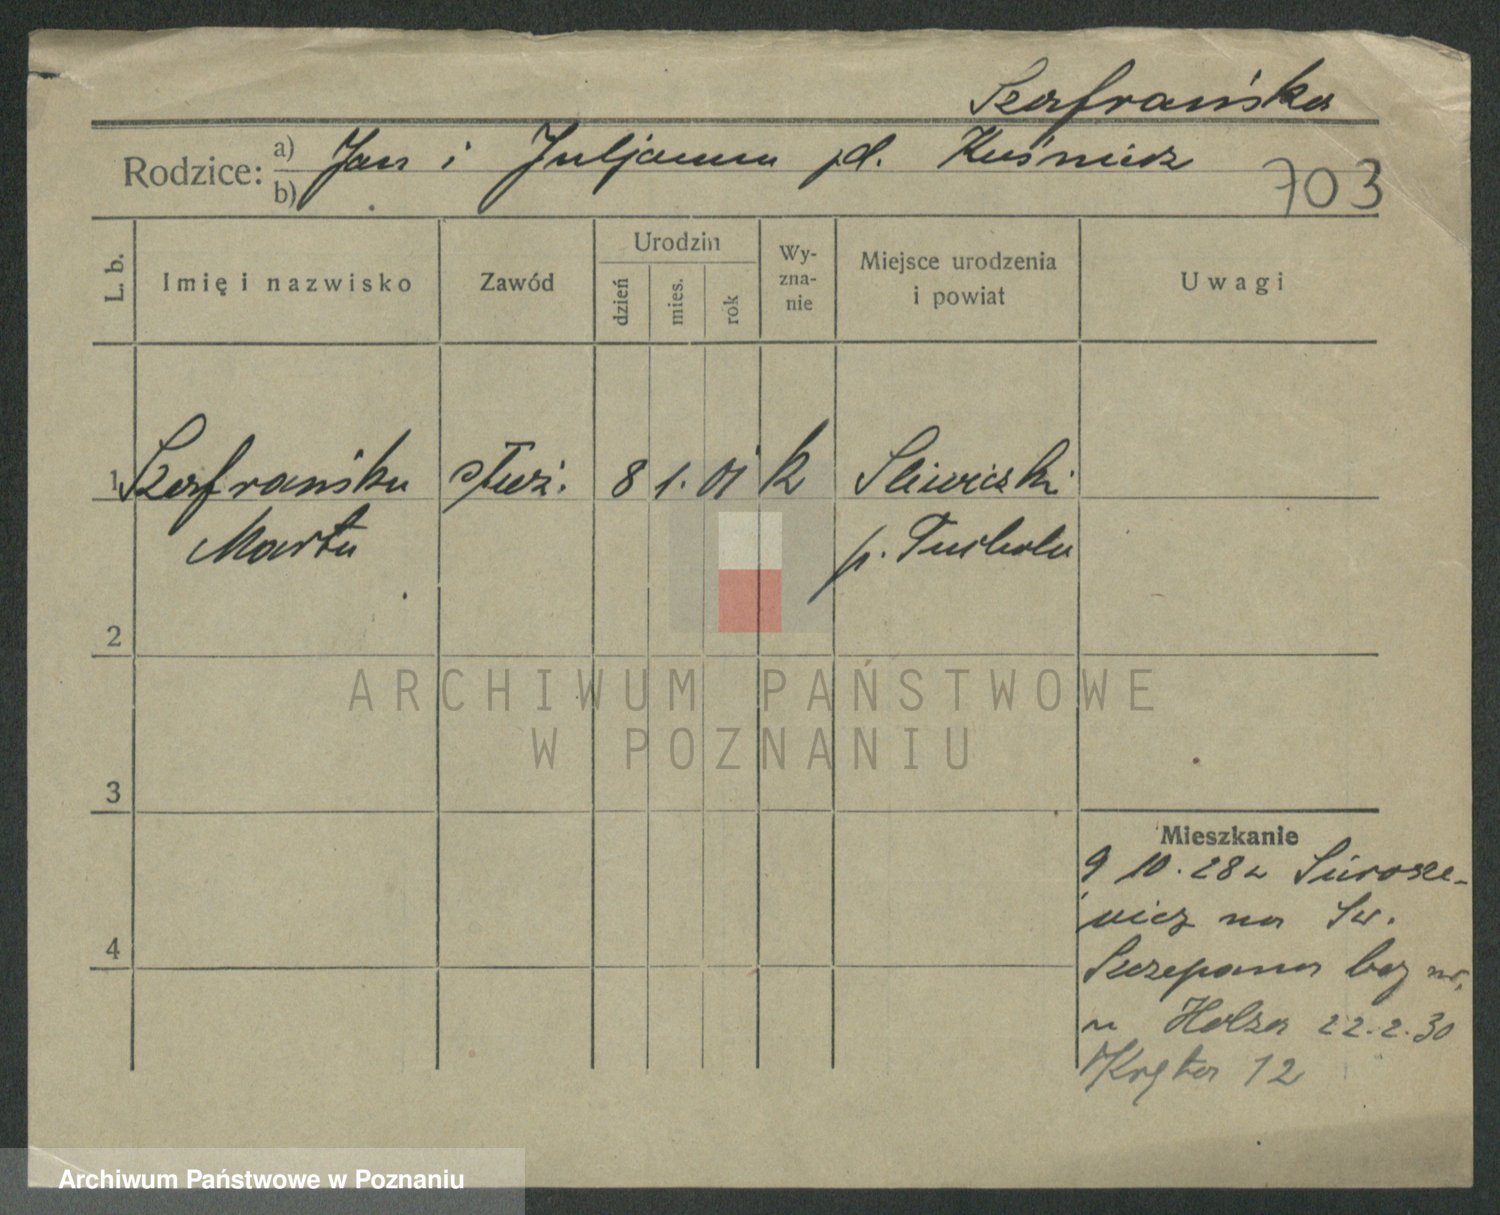 Szafrańska
Rodzice: a) Jan i Juljanna
b)
703
L. b.
Imię i nazwisko
Zawód
Urodzin
dzień
mies.
rok
Wy-
zna-
nie
Miejsce urodzenia
i powiat
Uwagi
1 Szafrańska służ. 8 1. 01 k Śliwiczki
Marta p. Tuchola
2
3
4
ARCHIWUM PAŃSTWOWE
W POZNANIU
Mieszkanie
9 10. 28 z
na Św.
Szczepana bez nr.
u Holza 22.2.30
Kręta 12
Archiwum Państwowe w Poznaniu